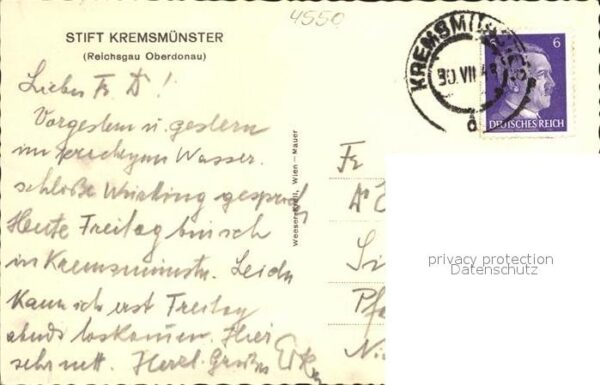 4550
STIFT KREMSMÜNSTER
(Reichsgau Oberdonau)
KREMSMÜNSTER
30.VII.4
6
DEUTSCHES REICH
Lieber Fr D!
Vorgestern u. gestern
im Wasser.
schloße gesperrt
Heute Freitag bin ich
in Kremsmünster. Leider
kann ich erst Freitag
abends loskommen. Hier
sehr nett. Herzl. Grüße
Wien-Mauer
Fr
privacy protection
Datenschutz